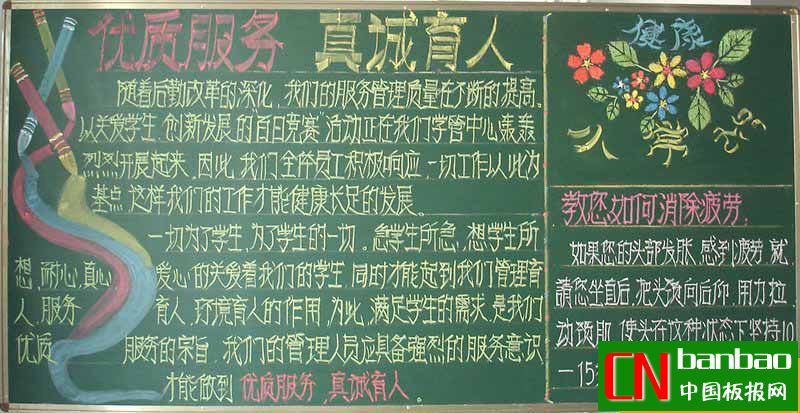 优质服务 真诚育人
随着后勤改革的深化，我们的服务管理质量在不断的提高。
以关爱学生，创新发展的"百日竞赛"活动正在我们学管中心轰轰
烈烈开展起来，因此，我们全体员工积极响应，一切工作以此为
基点，这样我们的工作才能健康长足的发展。
一切为了学生，为了学生的一切。急学生所急，想学生所
想，耐心，真心 爱心的关爱着我们的学生，同时才能起到我们管理育
人，服务 育人，环境育人的作用，为此，满足学生的需求，是我们
优质 服务的宗旨，我们的管理人员应具备强烈的服务意识
才能做到 优质服务，真诚育人。
健康
教您如何消除疲劳：
如果您的头部发胀，感到疲劳，就
请您坐直后，把头颈向后仰，用力拉
动颈肌，使头在这种状态下坚持10
—15
CN banbao
中国板报网